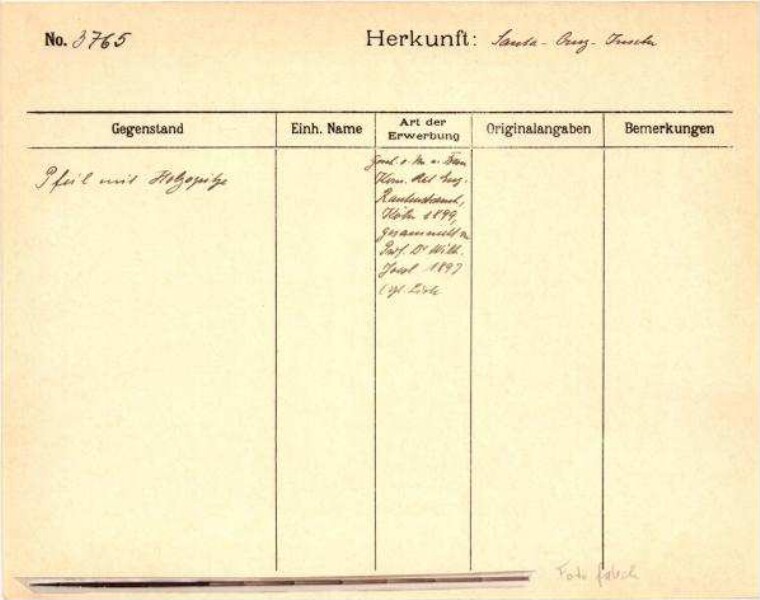 No. 3765
Herkunft: Santa-Cruz-Inseln
Gegenstand
Einh. Name
Art der
Erwerbung
Originalangaben
Bemerkungen
Pfeil mit Holzspitze
Gesch. v. Hr. u. Frau
Kom. Rat Eug.
Rautenstrauch,
Köln 1899,
gesammelt v.
Prof. Dr. Wilh.
Joest 1897
(vgl. Liste
Foto falsch